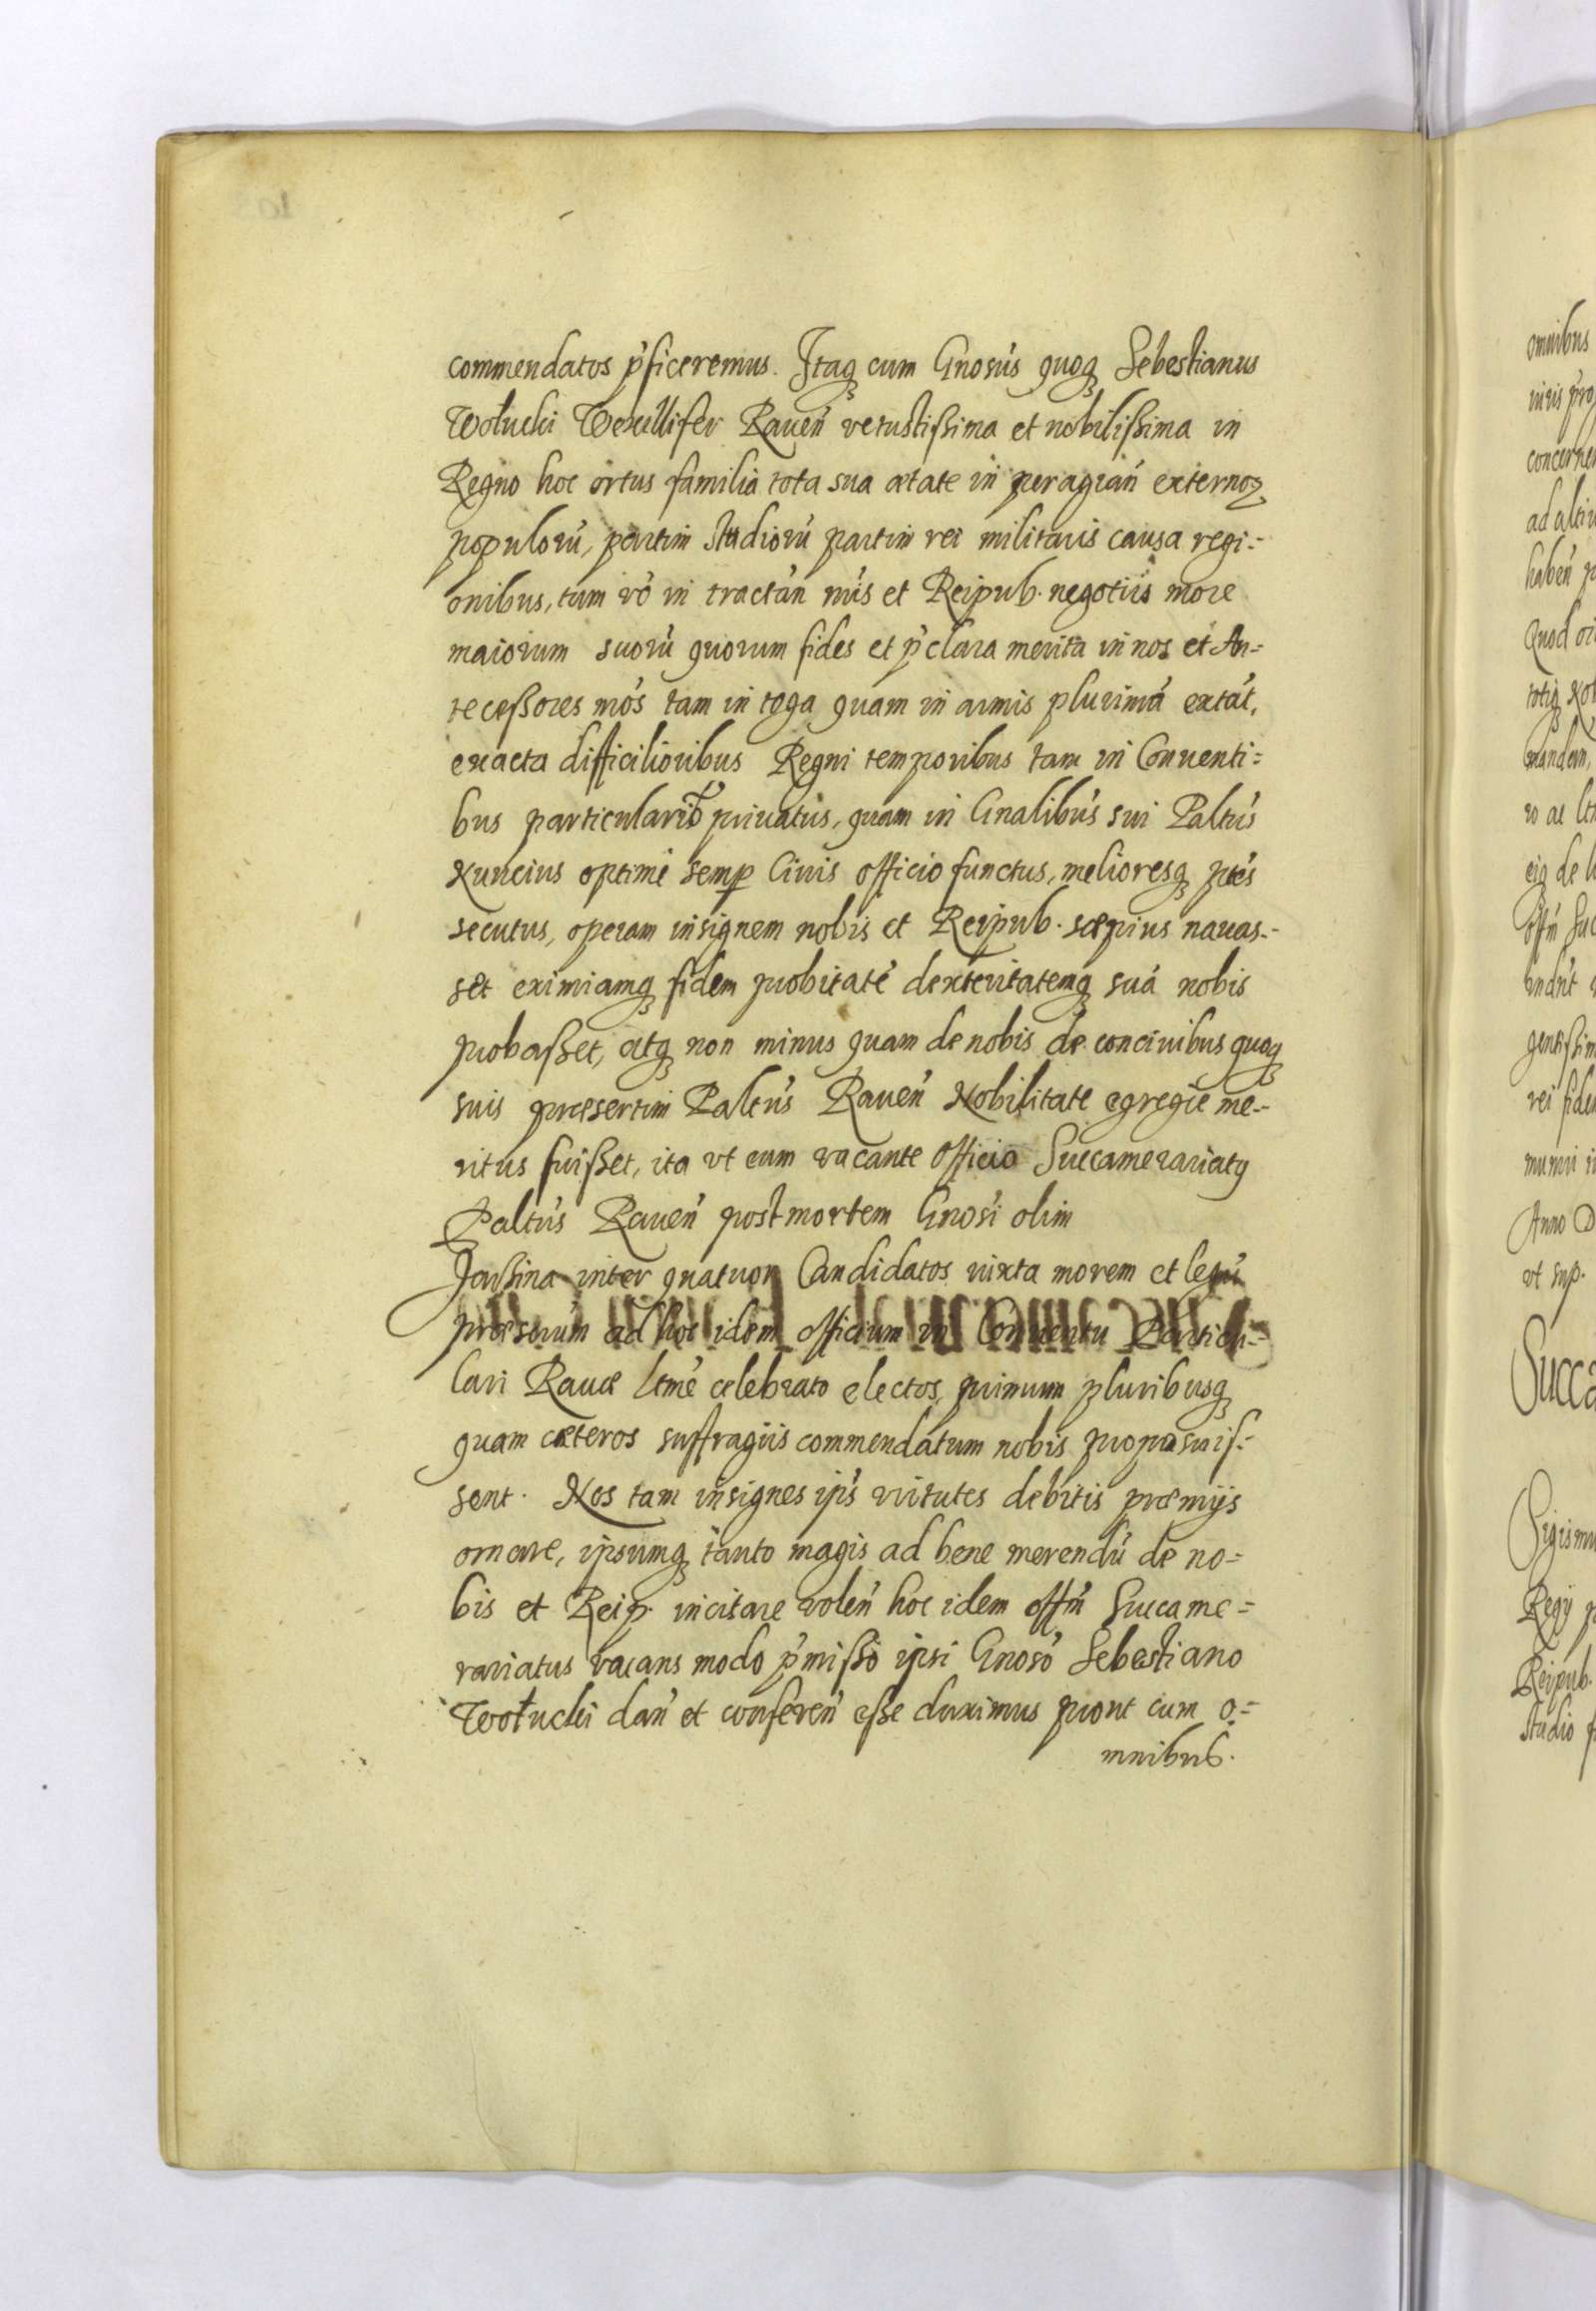 commendatos p̓ficeremus. Itaq cum Gnosus quoq Sebestianus
Wołucki Wexillifer Raven̄ vetustißima et nobilißima in
Regno hoc ortus familia tota sua ætate in peragran̄ externoꝝ
populorū, partim studiorū partim rei militaris causa regi:
onibus, tum vō in tractan̄ nr̄is et Reipub. negotiis more
maiorum suorū quorum fides et p̓clara merita in nos et An:
tecessores nr̄os tam in toga quam in armis plurimā extāt,
exacta difficilioribus Regni temporibus tam in Conventi:
bus particularib privatus, quam in Gnalibus sui Paltus
Nuncius optimi semp Civis officio functus, melioresq ptes
secutus, operam insignem nobis et Reipub. sæpius navas:
set eximiamq fidem probitatē dexteritatemq suā nobis
probaßet, atq non minus quam de nobis de concivibus quoq
suis præsertim Paltus Raven̄ Nobilitate egregie me:
ritus fuißet, ita vt eum vacante officio Succamerariatꝰ
Paltus Raven̄ post mortem Gnosi olim
inter quatuor Candidatos iuxta morem et legū
præscrium ad hoc idem officium in Conventu Particu:
lari Ravæ ltme celebrato electos, primum pluribusq
quam cæteros suffragiis commendatum nobis proposuis:
sent. Nos tam insignes ip̄s virtutes debitis præmijs
ornare, ipsumq tanto magis ad bene merendū de no:
bis et Reip. incitare volen̄ hoc idem offm̄ Succame:
rariatus vacans modo p̓mißo ipsi Gnoso Sebastiano
Wołucki dan̄ et conferen̄ eße duximus prout cum o:
mnibus.